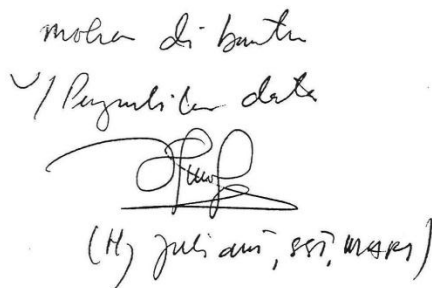 mohon di bantu
u/ Pengambilan data
(Hj Juliani, SSi, MARS)